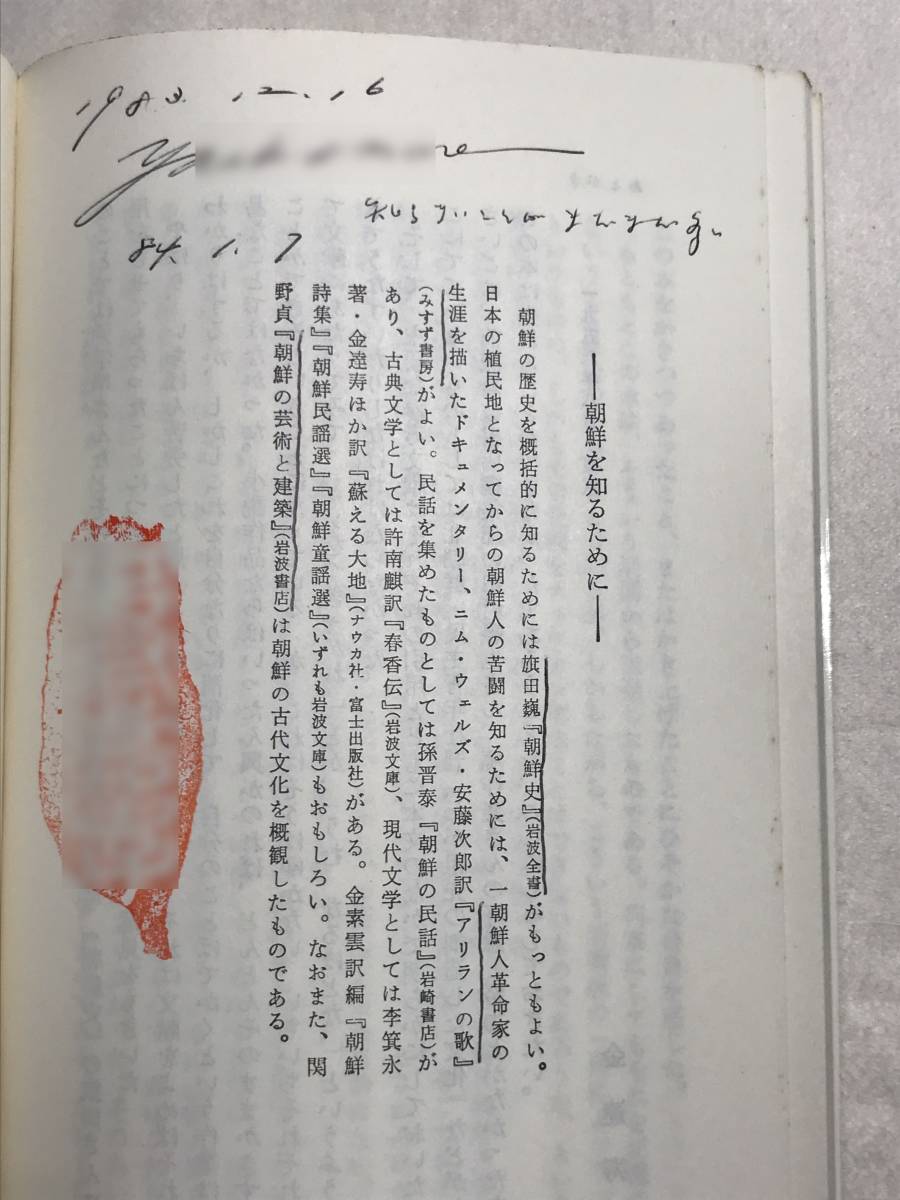 1983.12.16
知らないことがまだまだ多い
84.1.7
――朝鮮を知るために――
朝鮮の歴史を概括的に知るためには旗田巍『朝鮮史』(岩波全書)がもっともよい。
日本の植民地となってからの朝鮮人の苦闘を知るためには、一朝鮮人革命家の
生涯を描いたドキュメンタリー、ニム・ウェルズ・安藤次郎訳『アリランの歌』
(みすず書房)がよい。民話を集めたものとしては孫晋泰『朝鮮の民話』(岩崎書店)が
あり、古典文学としては許南麒訳『春香伝』(岩波文庫)、現代文学としては李箕永
著・金達寿ほか訳『蘇える大地』(ナウカ社・富士出版社)がある。金素雲訳編『朝鮮
詩集』『朝鮮民謡選』『朝鮮童謡選』(いずれも岩波文庫)もおもしろい。なおまた、関
野貞『朝鮮の芸術と建築』(岩波書店)は朝鮮の古代文化を概観したものである。